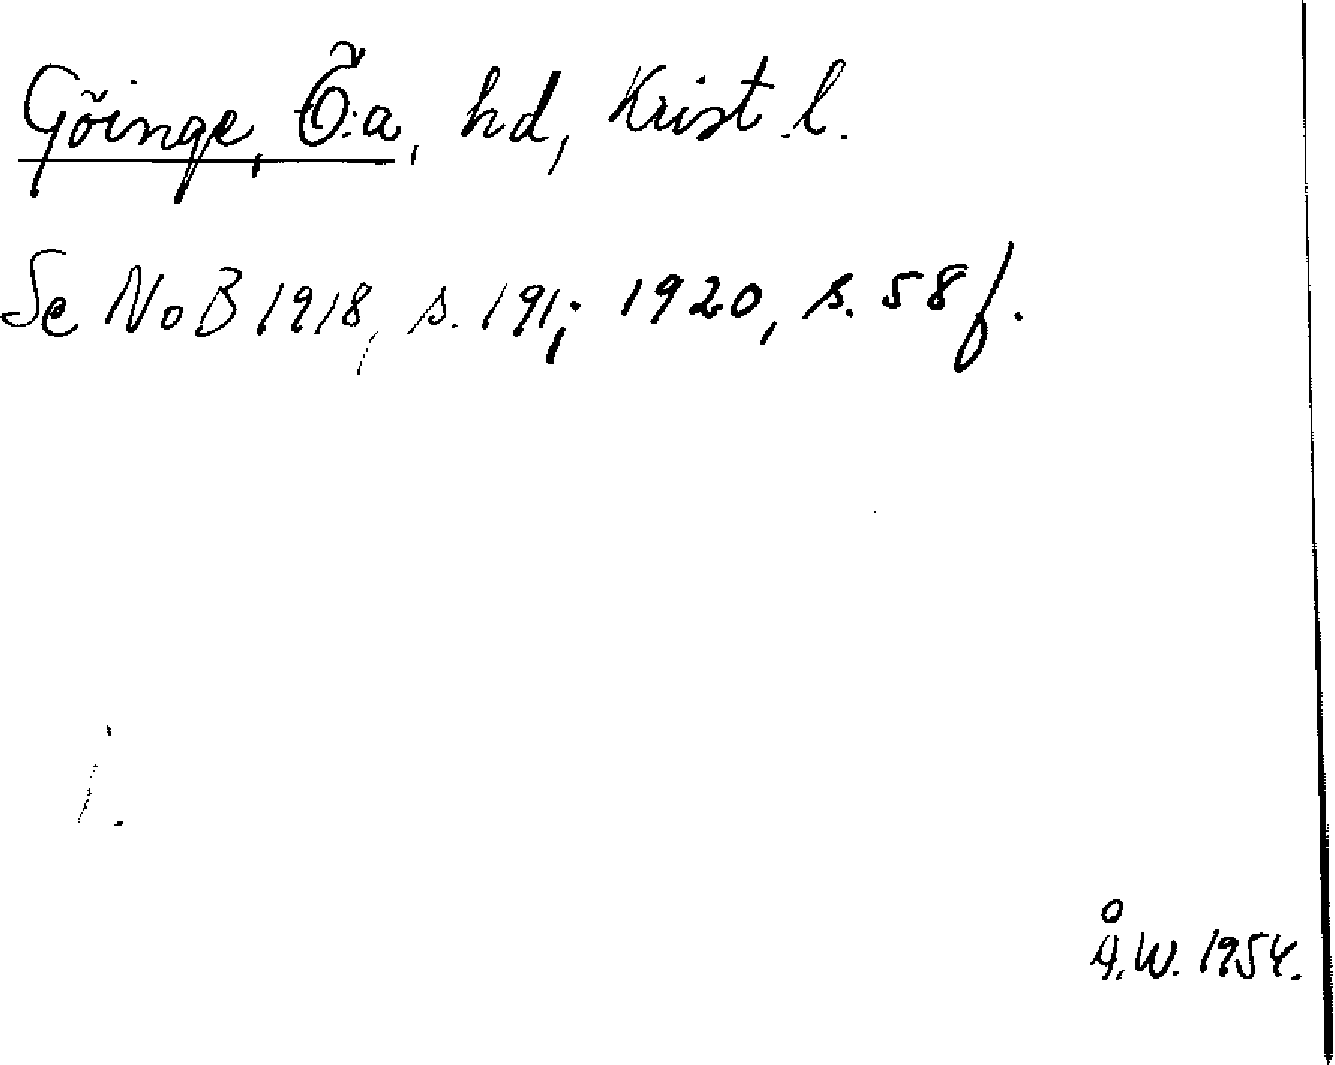 Göinge, Ö:a, hd, Krist. l.
Se NoB 1918, s. 191; 1920, s. 58 f.
Å.W. 1954.